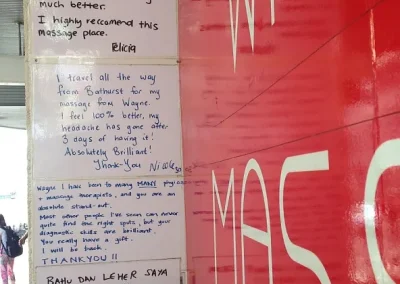 much better.
I highly reccomend this
massage place.
Alicia
I travel all the way
from Bathurst for my
massage from Wayne.
I feel 100% better, my
headache has gone after
3 days of having it!
Absolutely Brilliant!
Thank-You Nicole
Wayne I have been to many MANY physios
+ massage therapists, and you are an
absolute stand-out.
Most other people I've seen can never
quite find the right spots, but your
diagnostic skills are brilliant.
You really have a gift.
I will be back.
THANKYOU !!
BAHU DAN LEHER SAYA
W
MAS